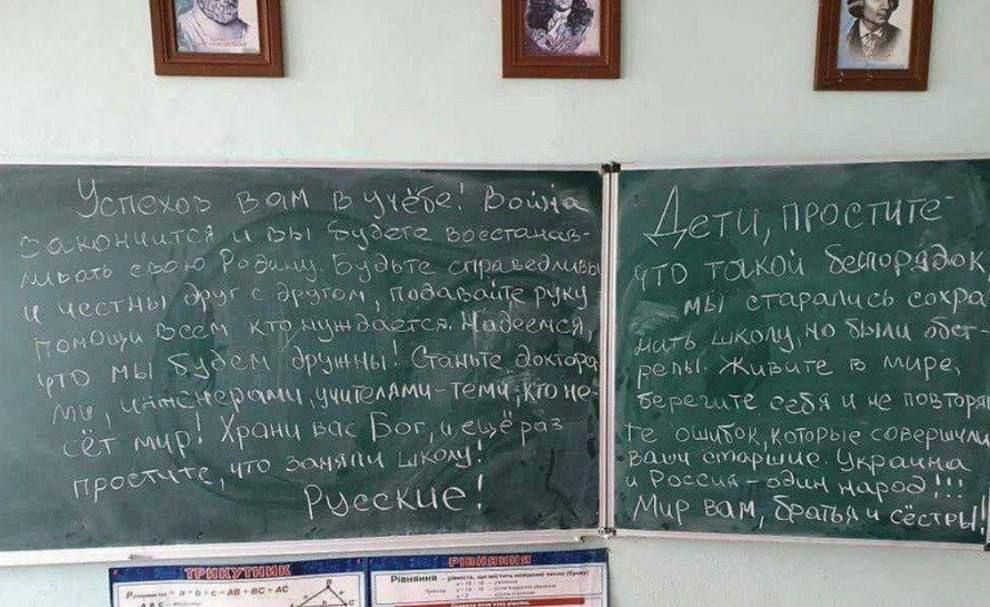 Успехов вам в учёбе! Война
закончится и вы будете восстанав-
ливать свою Родину. Будьте справедливы
и честны друг с другом, подавайте руку
помощи всем кто нуждается. Надеемся,
что мы будем дружны! Станьте доктора-
ми, инженерами, учителями-теми, кто не-
сёт мир! Храни вас Бог, и ещё раз
простите, что заняли школу!
Русские!
Дети, простите
что такой беспорядок,
мы старались сохра
нить школу, но были обст-
релы. Живите в мире,
берегите себя и не повторяй
те ошибок, которые совершили
ваши старшие. Украина
и Россия-один народ!!!
Мир вам, братья и сёстры!
ТРИКУТНИК
a + b + c = AB + BC + AC
РІВНЯННЯ
Рівняння - рівність, що містить невідоме число (букву)